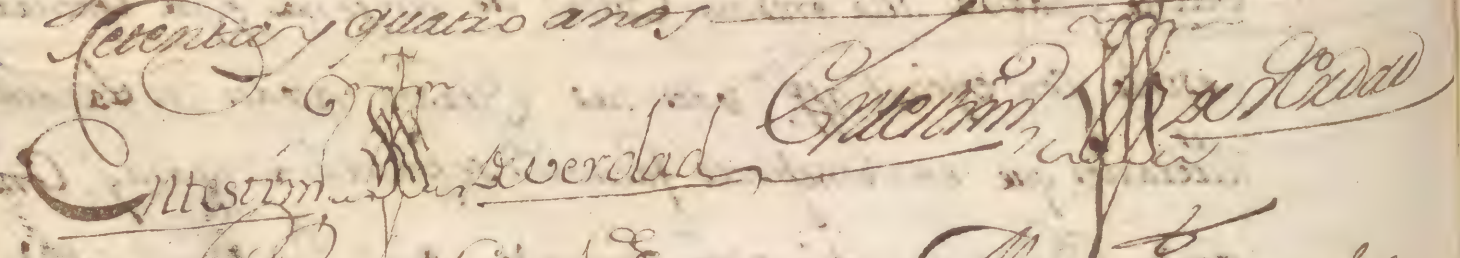 setenta y quatro anos
En testim.o de verdad En testim.o de Verdad